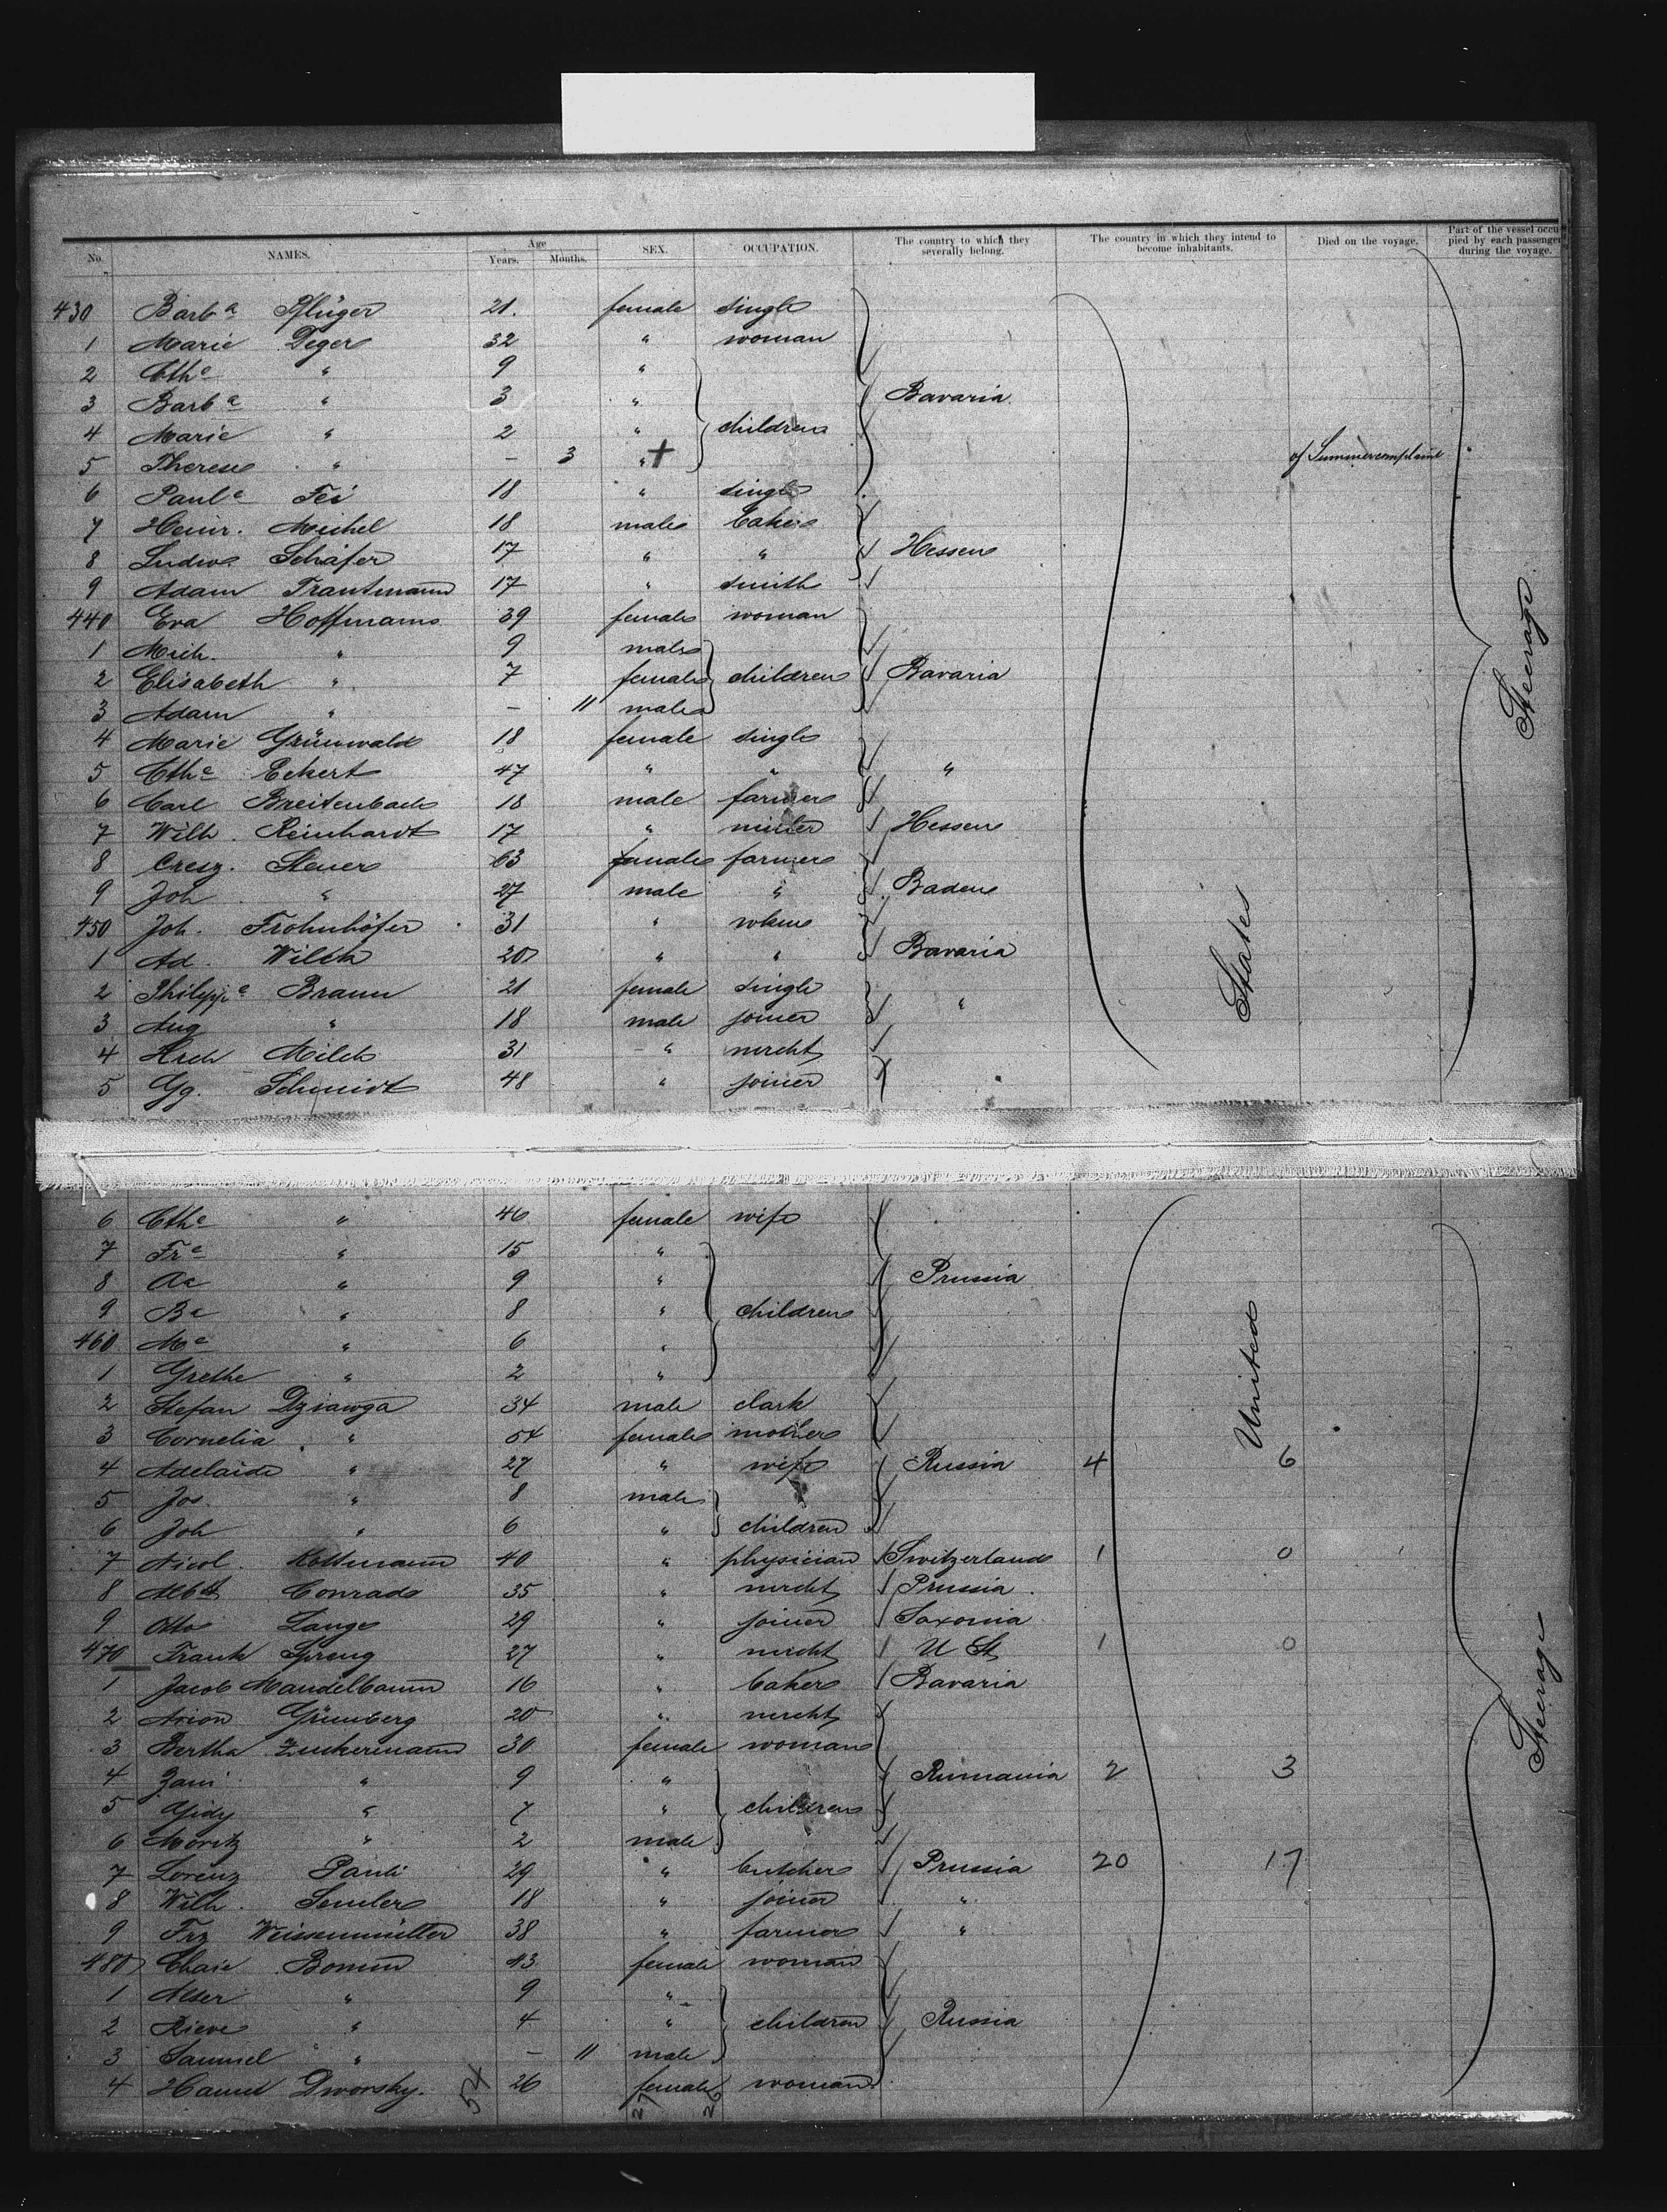 No. NAMES. Age Years. Months. SEX. OCCUPATION. The country to which they severally belong. The country in which they intend to become inhabitants. Died on the voyage. Part of the vessel occupied by each passenger during the voyage.
430 Barba Pflüger 21. female single
1 Marie Deger 32 " woman
2 Cthe " 9 "
3 Barba " 3 " Bavaria
4 Marie " 2 " children
5 Therese " - 3 " + of Summercomplaint
6 Paule Fei 18 " single
7 Heinr. Michel 18 male baker
8 Ludw. Schäfer 17 " " Hessen
9 Adam Trautmann 17 " smith
440 Eva Hoffmann 39 female woman
1 Mich. " 9 male
2 Elisabeth " 7 female children Bavaria
3 Adam " - 11 male
4 Marie Grünwald 18 female single
5 Cthe Eckert 47 " " "
6 Carl Breitenbach 18 male farmer
7 Wilh. Reinhardt 17 " miller Hessen
8 Cresz. Steuer 63 female farmer
9 Joh " 27 male " Baden
450 Joh. Frohnhöfer 31 "
1 Ad. Wilch 20 " " Bavaria
2 Philippe Braun 21 female single
3 Aug " 18 male joiner "
4 Milch 31 " mercht
5 Gg. Schmidt 48 " joiner
States
Steerage
6 Cthe " 46 female wife
7 Fre " 15 "
8 Ae " 9 " Prussia
9 Be " 8 " children
460 Me " 6 "
1 Grethe " 2 "
2 Stefan Dziawga 34 male clark
3 Cornelia " 54 female mother
4 Adelaide " 27 " wife Russia 4 6
5 Jos. " 8 male
6 Joh " 6 " children
7 Nicol. 40 " physician Switzerland 1 0
8 Conrad 35 " mercht Prussia
9 Otto Lange 29 " joiner Saxonia
470 Frank Spreng 27 " mercht U St 1 0
1 Jacob Mandelbaum 16 " baker Bavaria
2 Grünberg 20 " mercht
3 Bertha Zuckermann 30 female woman
4 Zani " 9 " Rumania 2 3
5 " 7 " children
6 Moritz " 2 male
7 Lorenz Pauli 29 " butcher Prussia 20 17
8 Wilh. Semler 18 " joiner "
9 Frz Weissenmüller 38 " farmer "
480 Chaie 43 female woman
1 " 9 "
2 Rieve " 4 " children Russia
3 Samuel " - 11 male
4 Dworsky. 26 female woman
54 27 26
United
Steerage